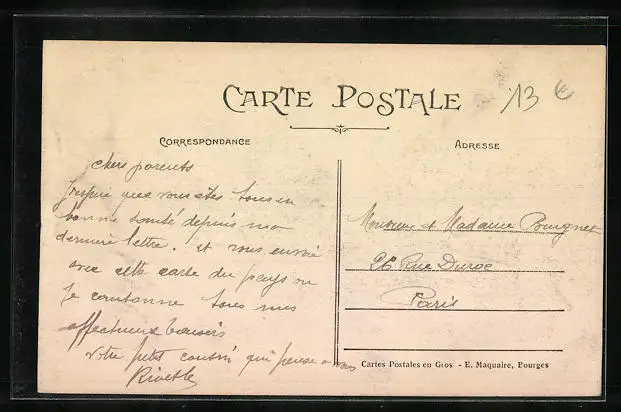 CARTE POSTALE
13 €
CORRESPONDANCE
ADRESSE
chers parents
J'espère que vous êtes tous en
bonne santé depuis ma
dernière lettre. et vous envoie
avec cette carte du pays ou
Je cantonne tous mes
affectueux baisers
votre petit cousin qui pense a vous
Monsieur et Madame
26 Rue Duroc
Paris
Cartes Postales en Gros - E. Maquaire, Bourges